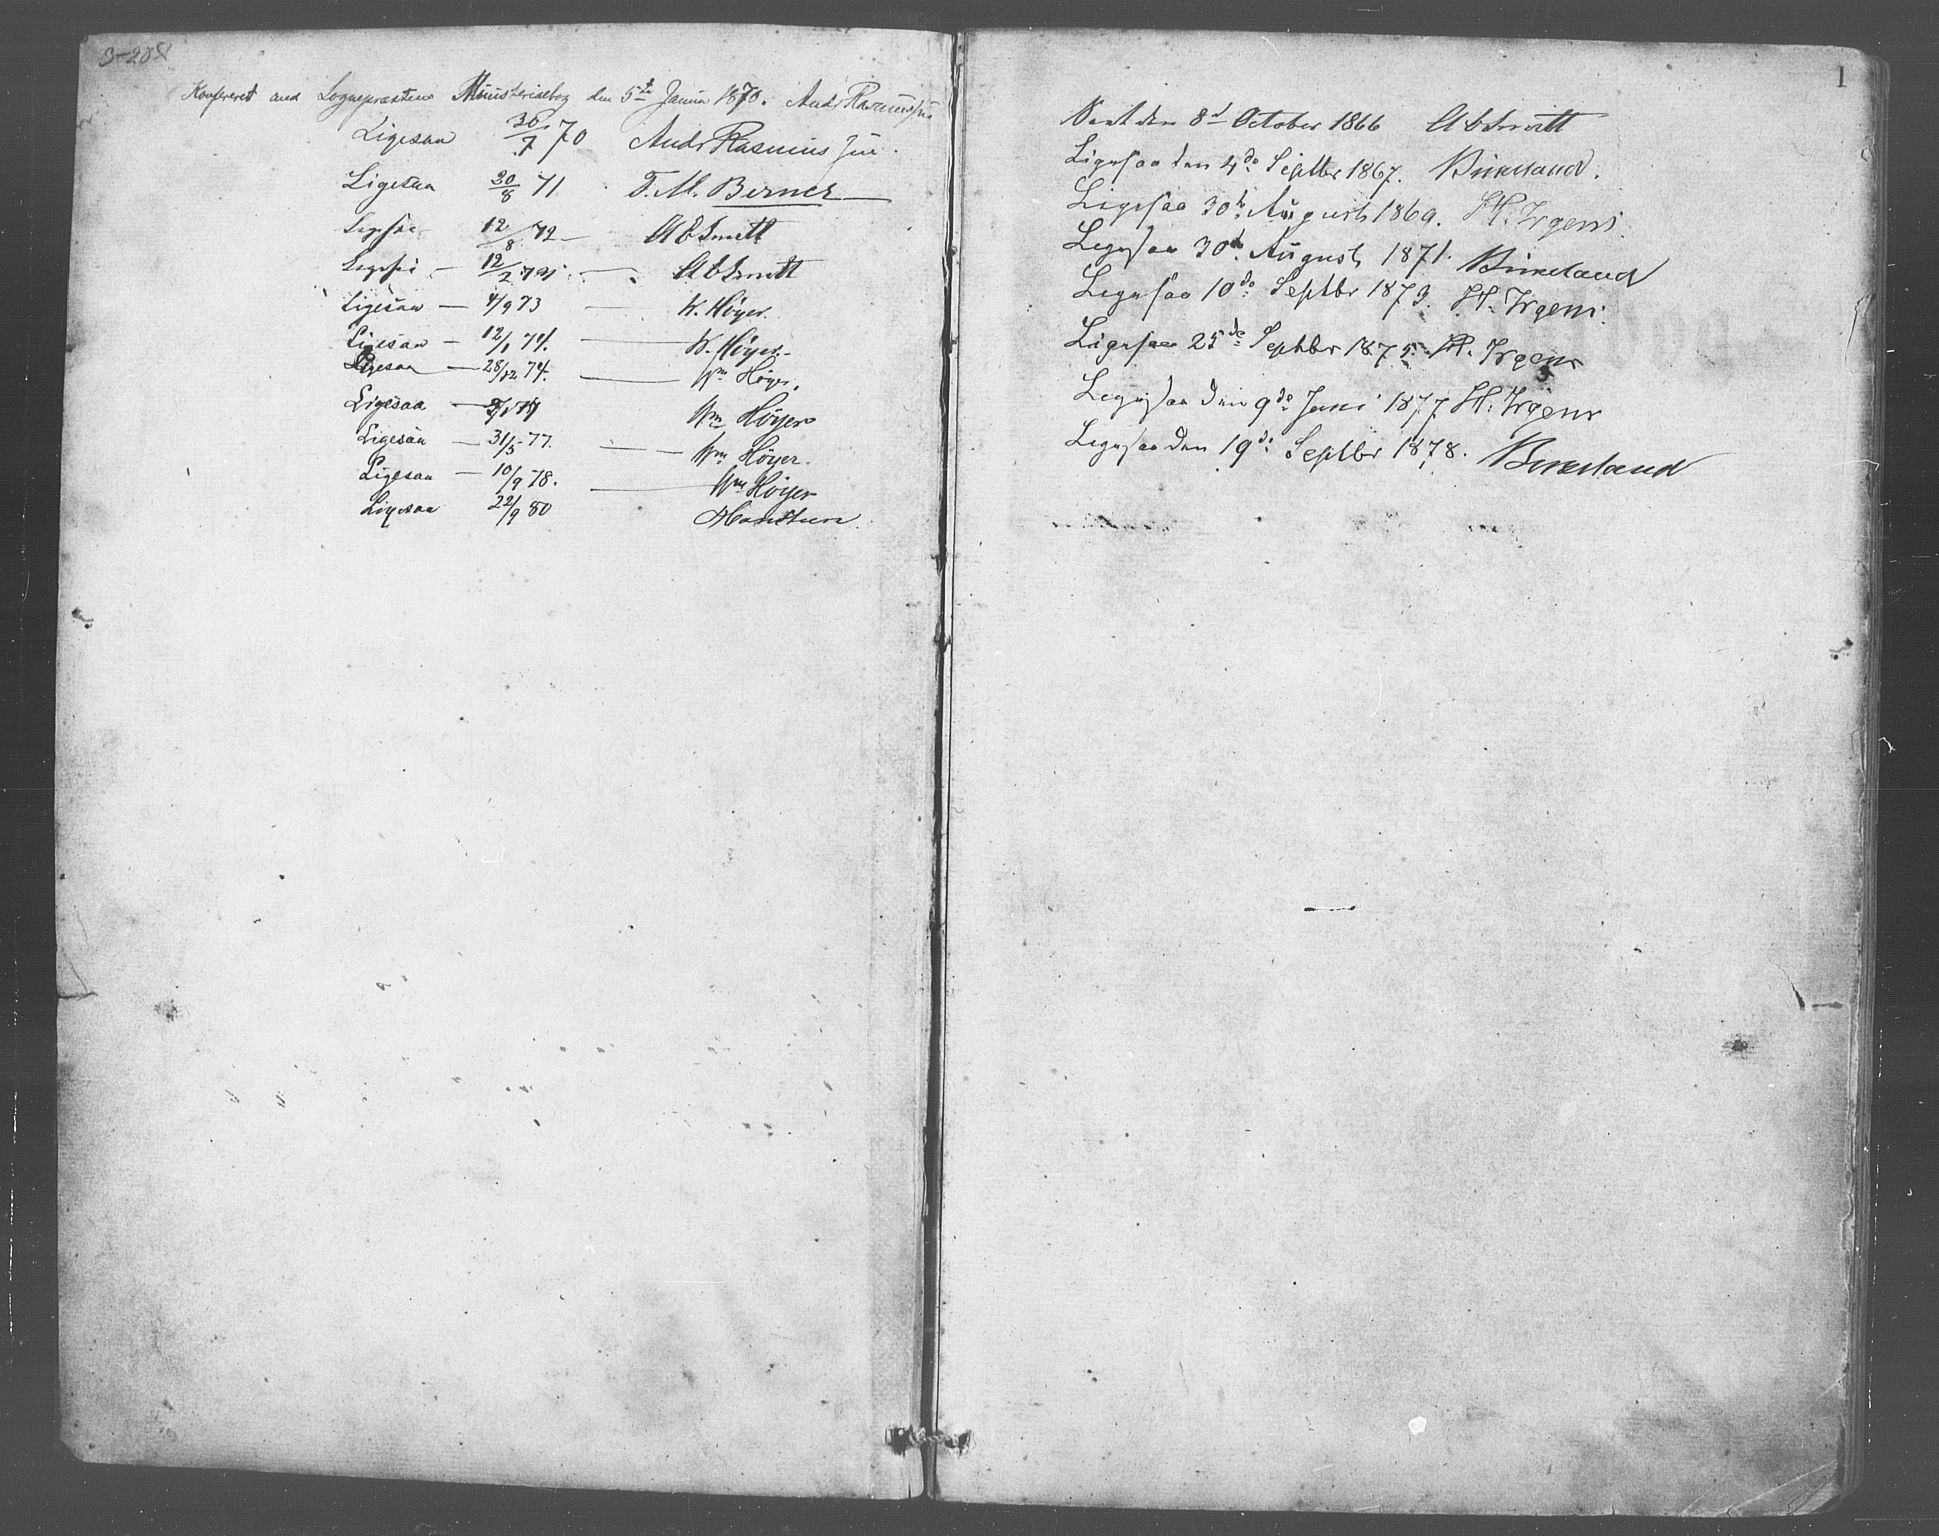 Konfereret med Sogneprestens Ministerialbog den 5te Januar 1870. Andr Rasmussen
Ligesaa 30/7 70 Andr Rasmussen
Ligesaa 20/8 71. T. M. Berner
Ligesaa 12/8 72 – A E Smitt
Ligesaa – 12/2 73 – A E Smitt
Ligesaa – 4/9 73 – W. Høyer.
Ligesaa – 12/1 74. – W. Høyer.
Ligesaa – 28/12 74. – Wm Høyer.
Ligesaa – Wm Høyer
Ligesaa – 31/5 77. – Wm Høyer.
Ligesaa – 10/9 78. – Wm Høyer
Ligesaa 22/9 80
1
Seet den 8d October 1866 A E Smitt
Ligesaa den 4de Septbr 1867. Birkeland.
Ligesaa 30te August 1869. H. Irgens.
Ligesaa 30te August 1871. Birkeland
Ligesaa 10de Septbr 1873. H. Irgens.
Ligesaa 25de Septbr 1875. H. Irgens
Ligesaa den 9de Juni 1877 H. Irgens
Ligesaa den 19de Septbr 1878. Birkeland